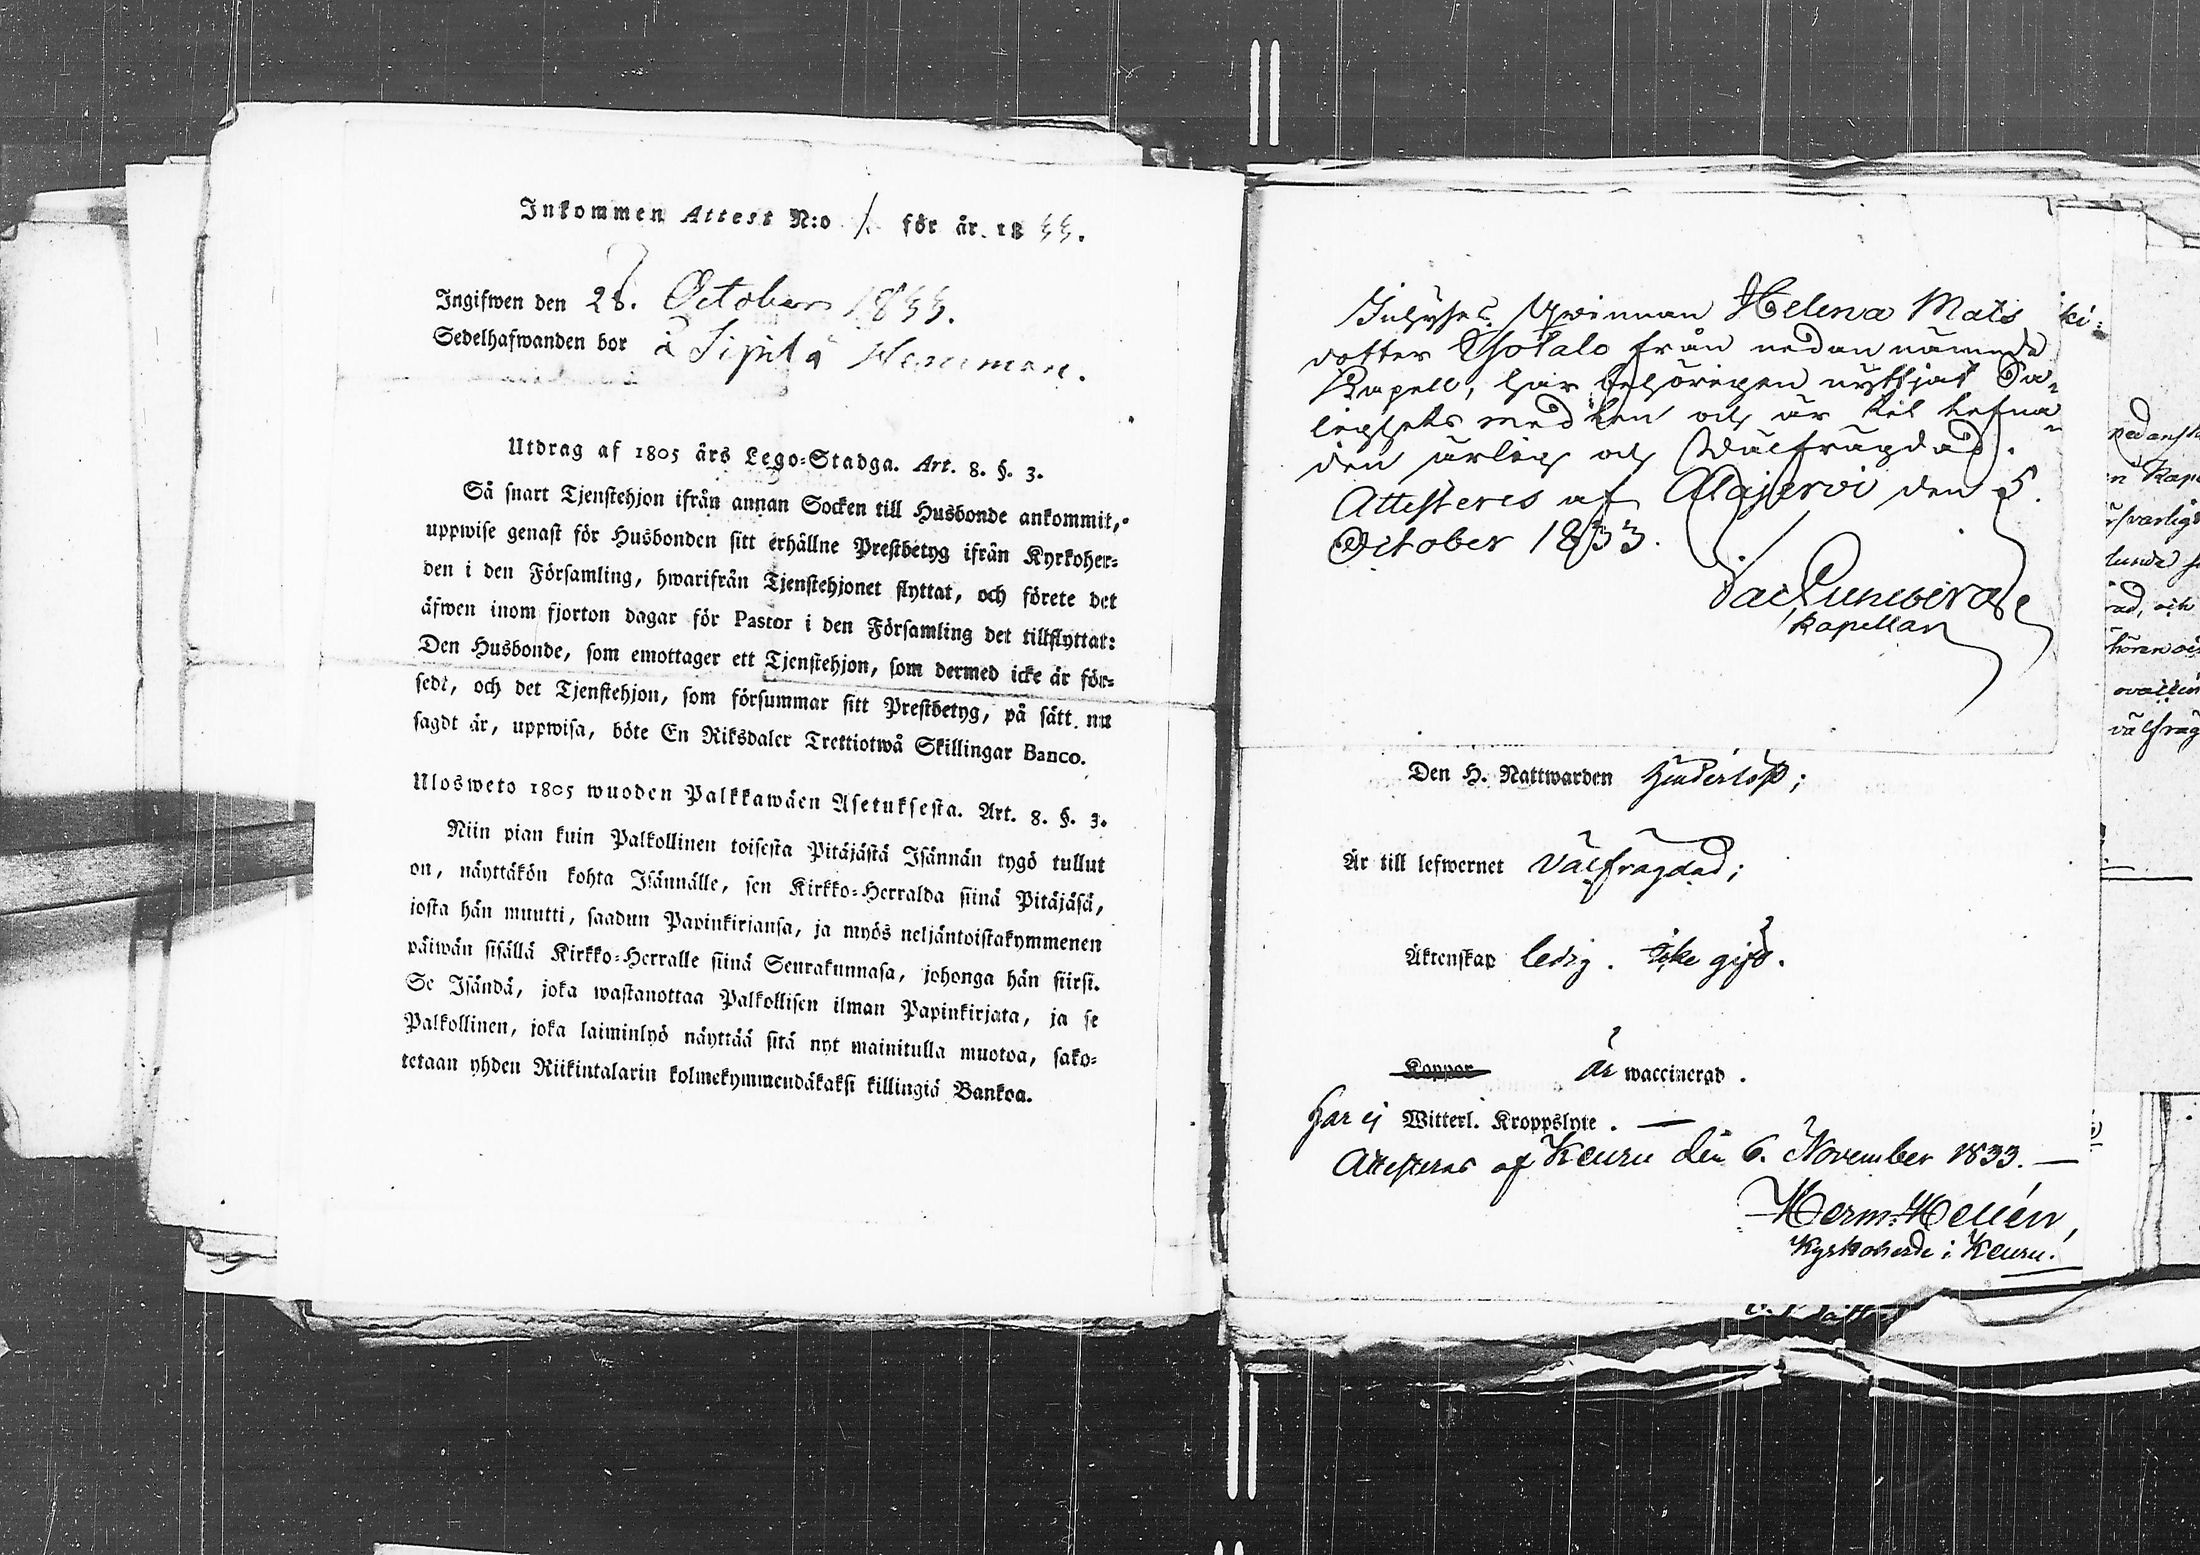 Inkommen Attest N:o 1. för år 1833.
Ingifwen den 28. October 1833.
Sedelhafwanden bor å Sipilä
Utdrag af 1805 års Lego-Stadga. Art. 8. §. 3.
Så snart Tjenstehjon ifrån annan Socken till Husbonde ankommit,
uppwise genast för Husbonden sitt erhållne Prestbetyg ifrån Kyrkoher-
den i den Församling, hwarifrån Tjenstehjonet flyttat, och förete det
äfwen inom fjorton dagar för Pastor i den Församling det tillflyttat:
Den Husbonde, som emottager ett Tjenstehjon, som dermed icke är för-
sedt, och det Tjenstehjon, som försummar sitt Prestbetyg, på sätt nu
sagdt är, uppwisa, böte En Riksdaler Trettiotwå Skillingar Banco.
Ulosweto 1805 wuoden Palkkawäen Asetuksesta. Art. 8. §. 3.
Niin pian kuin Palkollinen toisesta Pitäjästä Isännän tygö tullut
on, näyttäkön kohta Isännälle, sen Kirkko-Herralda siinä Pitäjäsä,
josta hän muutti, saadun Papinkirjansa, ja myös neljäntoistakymmenen
päiwän sisällä Kirkko-Herralle siinä Seurakunnasa, johonga hän siirsi.
Se Isändä, joka wastanottaa Palkollisen ilman Papinkirjata, ja se
Palkollinen, joka laiminlyö näyttää sitä nyt mainitulla muotoa, sako-
tetaan yhden Riikintalarin kolmekymmendäkaksi killingiä Bankoa.
Qwinnan Helena Mats
dotter från nedannämnde
Kapell, har behörigen nyttjat Sa-
lighets medlen och är till lefna-
den ärlig och Wälfrägdad.
Attesteres af Alajerwi den 5.
October 1833.
Kapellan
Den H. Nattwarden hinderlöst;
Är till lefwernet Välfrägdad;
Äktenskap ledig. icke gift.
Koppor är waccinerad.
har ej Witterl. Kroppslyte. —
Attesteras af Keuru den 6. November 1833. —
Herm. Hellén,
Kyrkoherde i Keuru.